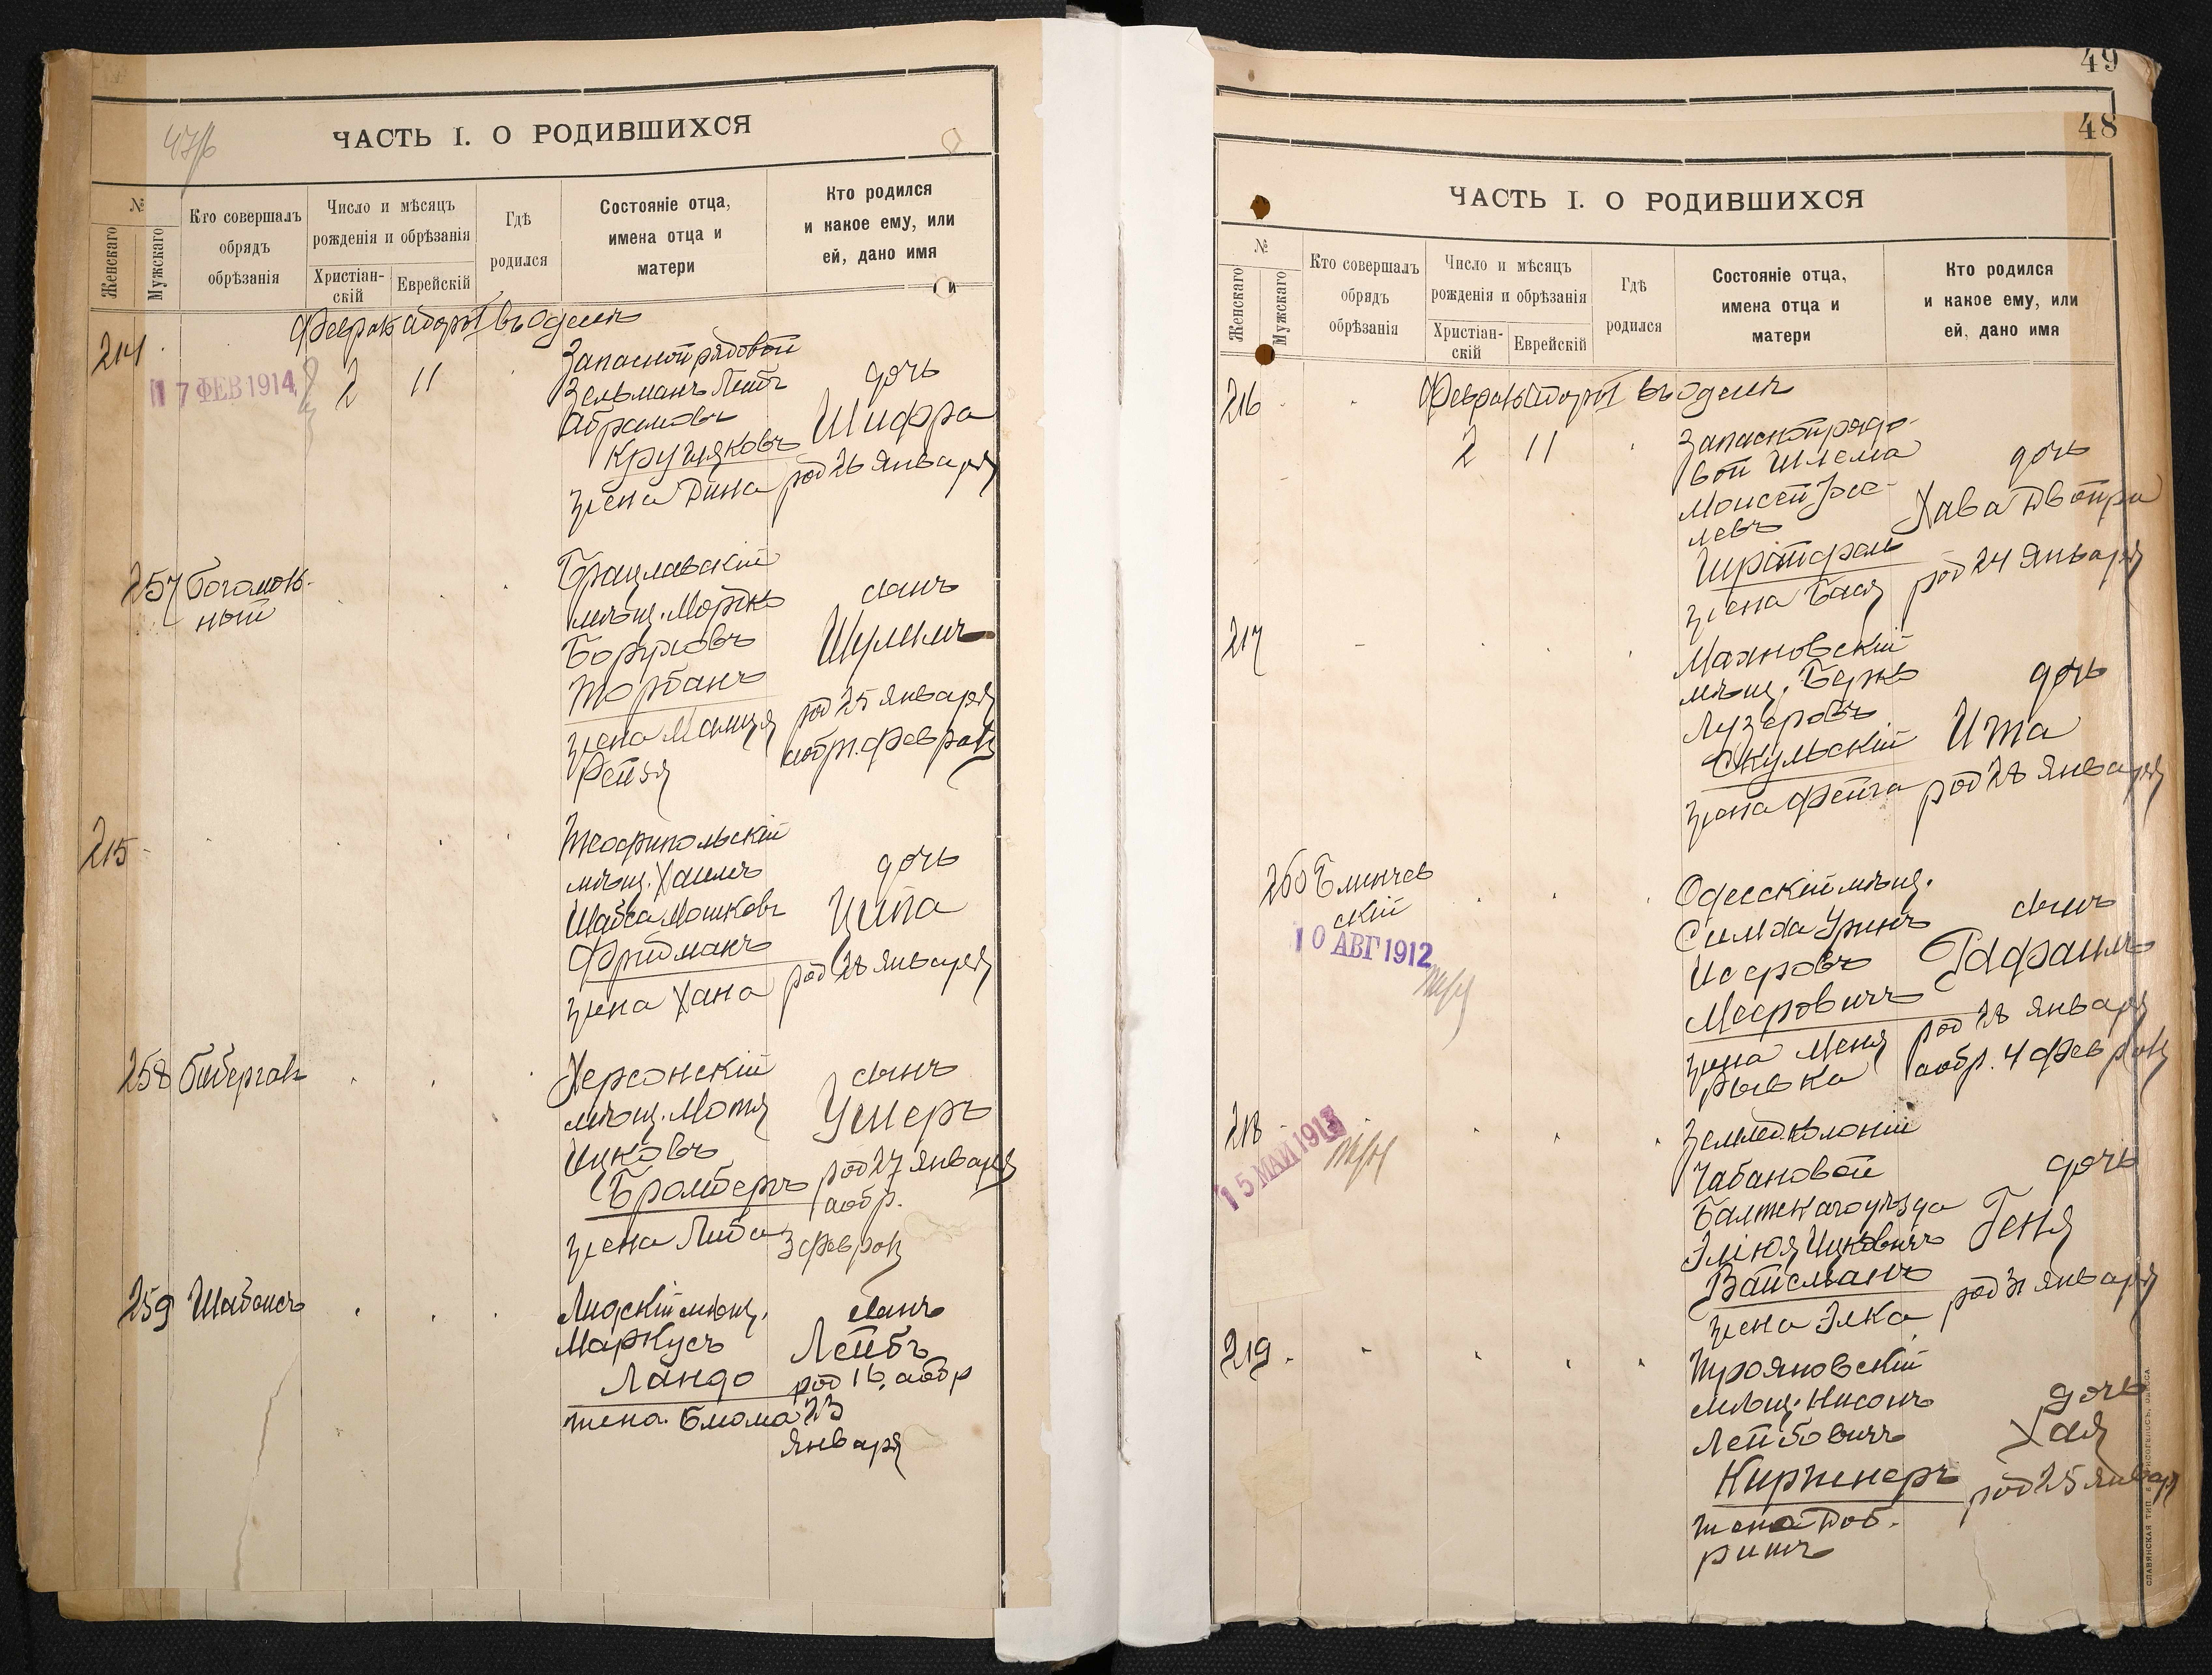 47об
ЧАСТЬ I. О РОДИВШИХСЯ
№
Женскаго
Мужскаго
Кто совершалъ
обрядъ
обрѣзанія
Число и мѣсяцъ
рожденія и обрѣзанія
Христіан-
скій
Еврейскій
Гдѣ
родился
Состояніе отца,
имена отца и
матери
Кто родился
и какое ему, или
ей, дано имя
и
въ Одессѣ
214
17 ФЕВ 1914
2
11
Запасной рядовой
Зельманъ Лейбъ
Абрамовъ
Кругляковъ
жена Дина
дочь
Шифра
род 26 Января
257
Богомоль-
ный
Брацлавскій
мѣщ. Мошко
Боруховъ
Торбанъ
жена Маня
Рейзя
сынъ
Шулимъ
род 25 января
а обр. февраля
215
Теофипольскій
мѣщ. Хаимъ
Шабса Мошковъ
Фридманъ
жена Хана
дочь
Ципа
род 28 января
258
Биберганъ
Херсонскій
мѣщ. Мотя
Ицковъ
Бромбергъ
жена Либа
сынъ
Ушеръ
род 27 января
а обр.
3 февраля
259
Шабаисъ
Лидскій мѣщ.
Маркусъ
Ландо
жена. Блюма
сынъ
Лейбъ
род 16. а обр
23
января
49
48
ЧАСТЬ I. О РОДИВШИХСЯ
№
Женскаго
Мужскаго
Кто совершалъ
обрядъ
обрѣзанія
Число и мѣсяцъ
рожденія и обрѣзанія
Христіан-
скій
Еврейскій
Гдѣ
родился
Состояніе отца,
имена отца и
матери
Кто родился
и какое ему, или
ей, дано имя
въ Одессѣ
216
2
11
Запасной рядо-
вой Шлема
Моисей
левъ
жена Бася
дочь
Хава Двойра
род 24 Января
217
Маяновскій
мѣщ. Берко
Лузеровъ
Скульскій
жена Фейга
дочь
Ита
род 28 января
260
Блинчев
скій
10 АВГ 1912
Одесскій мѣщ.
Симха Уринъ
Исеровъ
Мееровичъ
жена Меня
Рывка
сынъ
Рафаилъ
род 28 января
а обр. 4 февраля
218
15 МАЙ 1913
Землед. колоніи
Чабановой
Балтскаго уѣзда
Элюкя Ицковичъ
Вайсманъ
жена Элка
дочь
Геня
род 31 января
219
Трояновскій
мѣщ. Нисонъ
Лейбовичъ
Киржнеръ
жена Доб-
ришъ
дочь
Хая
род 25 январ